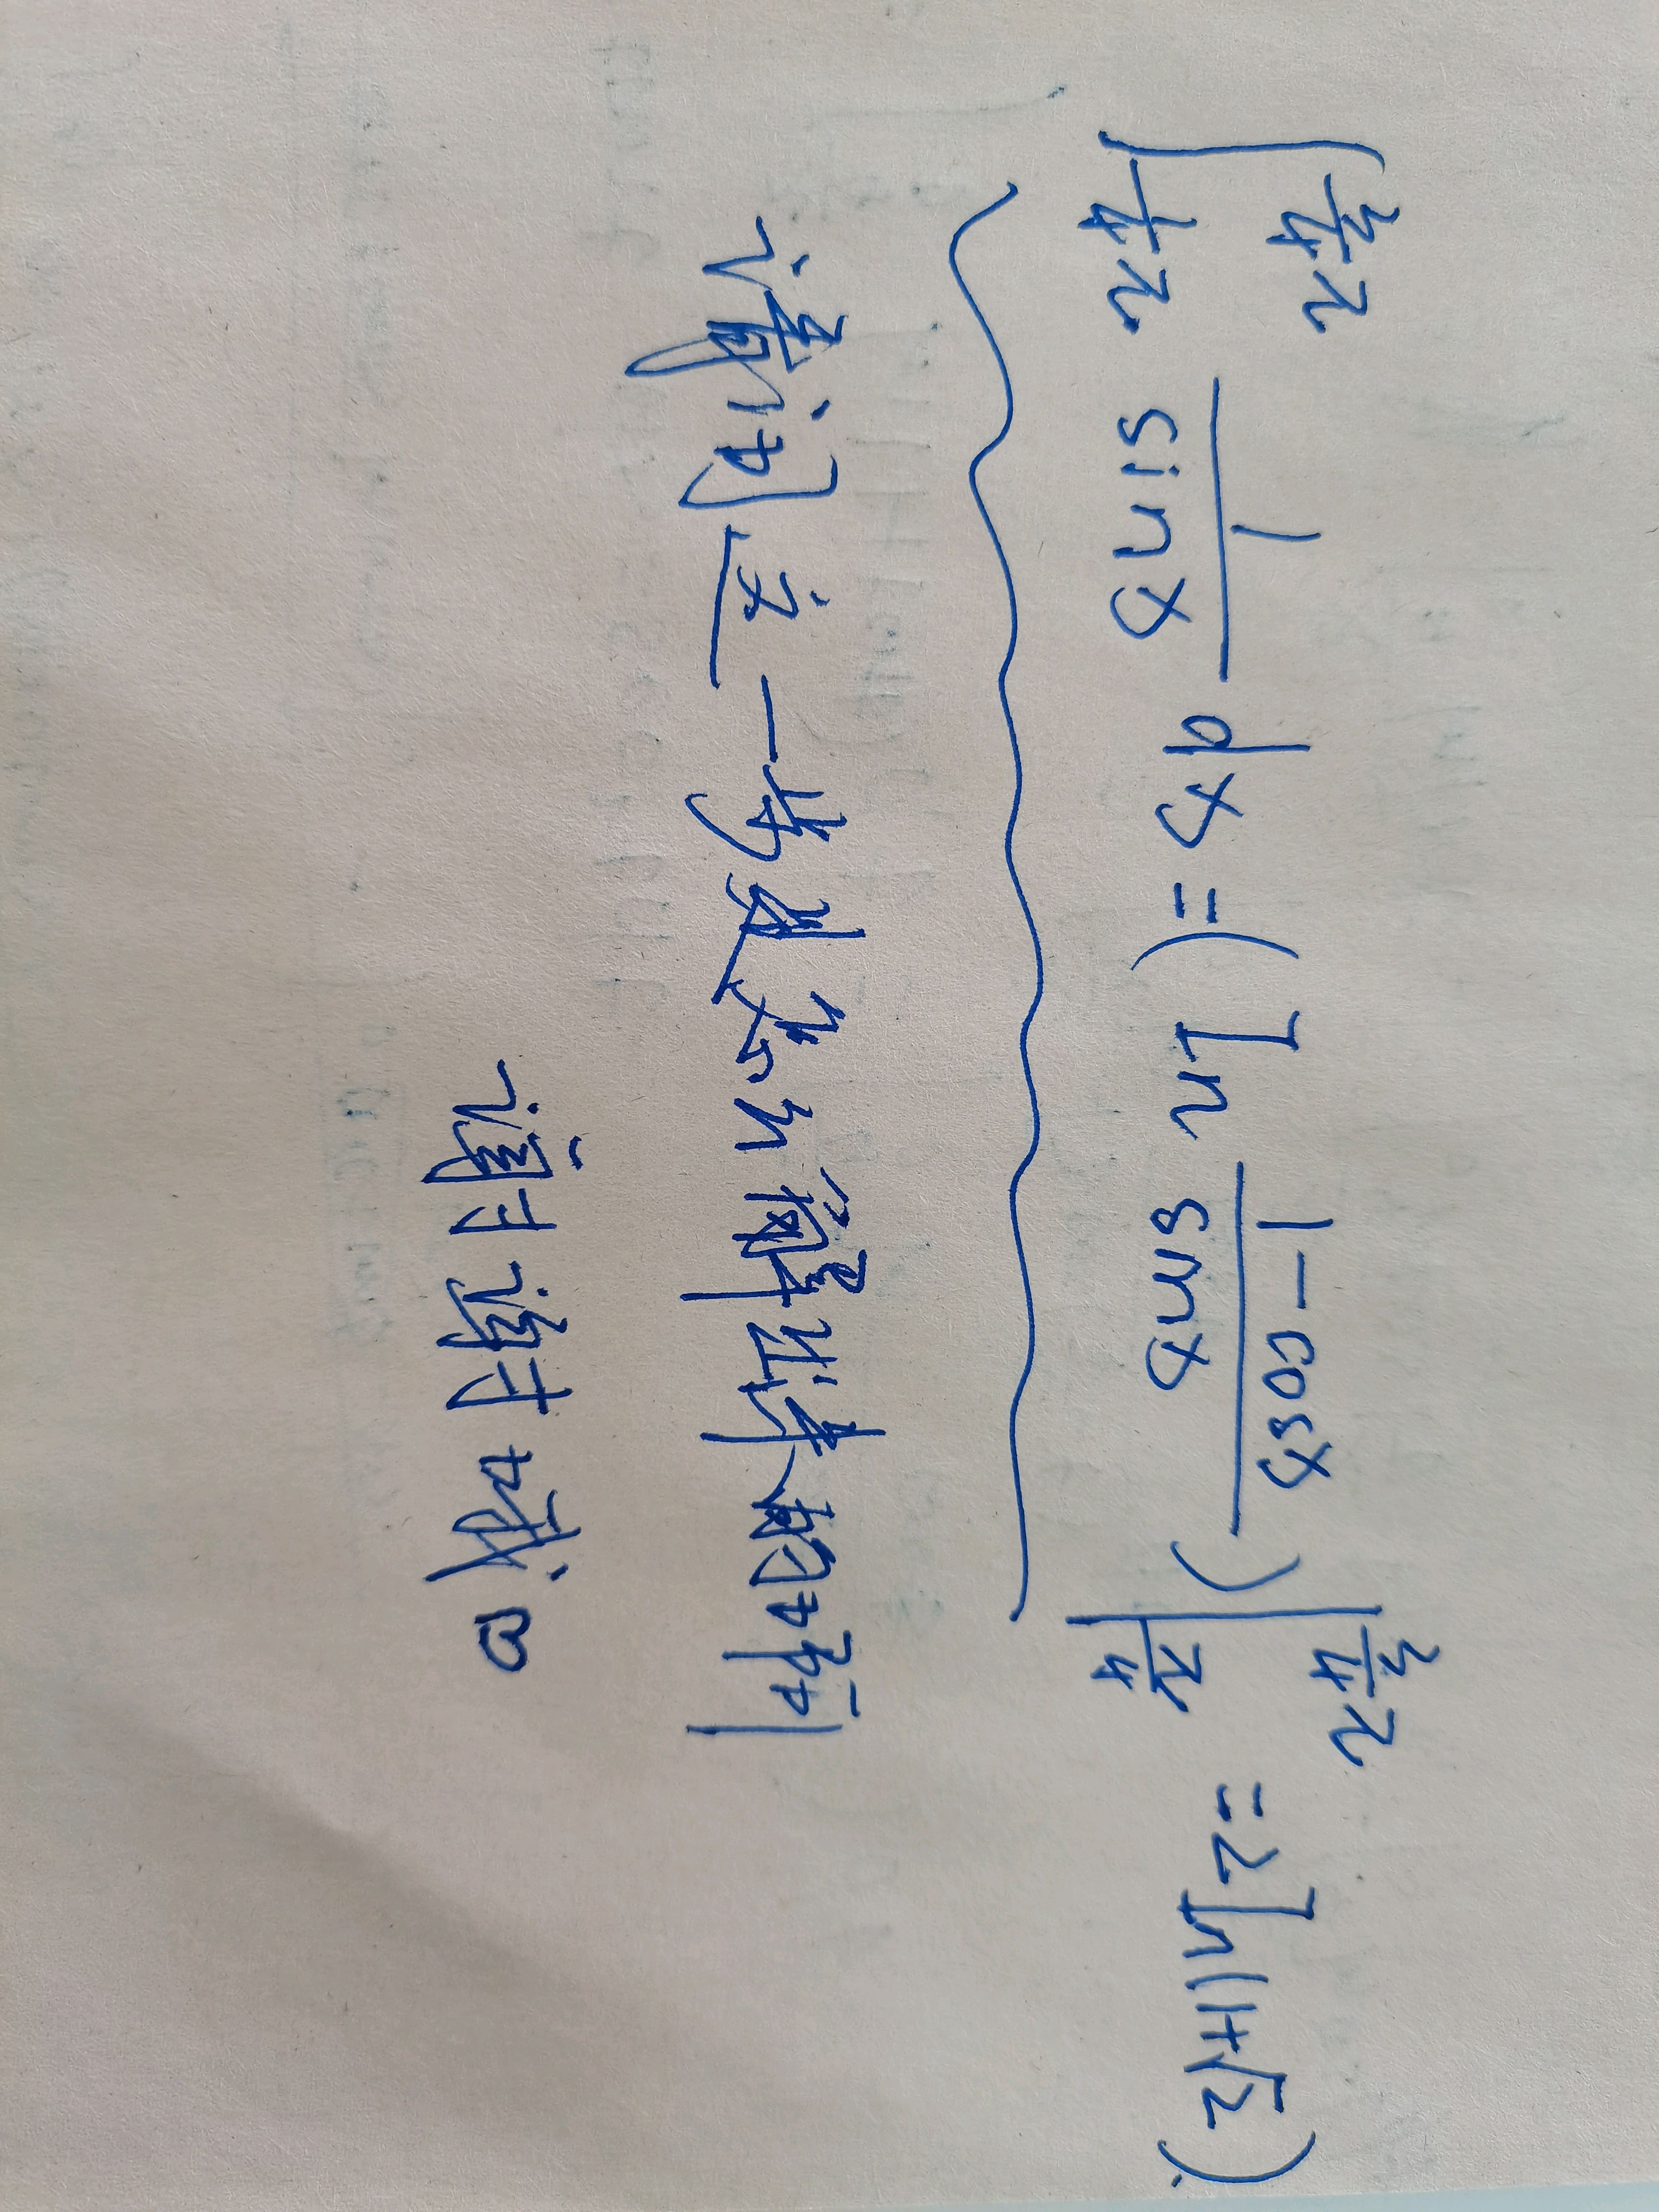 ∫_{\frac{1}{4}π}^{\frac{3}{4}π} \frac{1}{sinx} dx = (ln \frac{1-cosx}{sinx})|_{\frac{π}{4}}^{\frac{3}{4}π} = 2ln(1+√2)
请问这一步是怎么解出来的啊
谢谢哦。